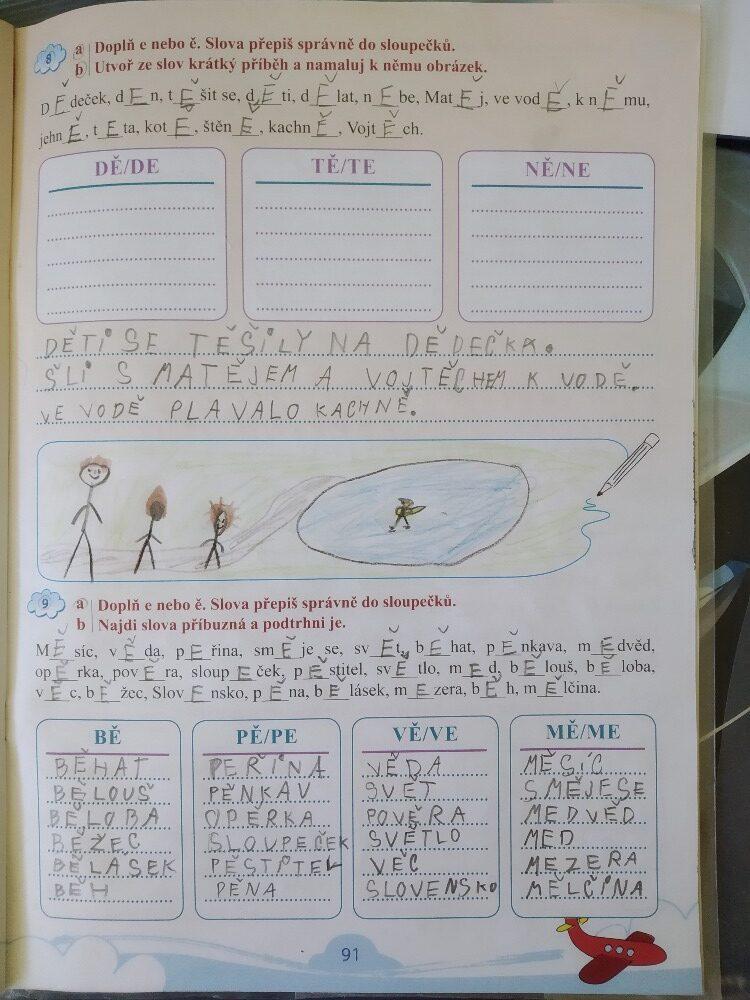 8 a Doplň e nebo ě. Slova přepiš správně do sloupečků.
b Utvoř ze slov krátký příběh a namaluj k němu obrázek.
D Ě deček, d E n, t Ě šit se, d Ě ti, d Ě lat, n E be, Mat Ě j, ve vod Ě, k n Ě mu,
jehn Ě, t E ta, kot Ě, štěn Ě, kachn Ě, Vojt Ě ch.
DĚ/DE TĚ/TE NĚ/NE
DĚTI SE TĚŠILY NA DĚDEČKA.
ŠLI S MATĚJEM A VOJTĚCHEM K VODĚ.
VE VODĚ PLAVALO KACHNĚ.
9 a Doplň e nebo ě. Slova přepiš správně do sloupečků.
b Najdi slova příbuzná a podtrhni je.
M Ě síc, v Ě da, p E řina, sm Ě je se, sv Ě t, b Ě hat, p Ě nkava, m E dvěd,
op Ě rka, pov Ě ra, sloup E ček, p Ě stitel, sv Ě tlo, m E d, b Ě louš, b Ě loba,
v Ě c, b Ě žec, Slov E nsko, p Ě na, b Ě lásek, m E zera, b Ě h, m Ě lčina.
BĚ PĚ/PE VĚ/VE MĚ/ME
BĚHAT PEŘINA VĚDA MĚSÍC
BĚLOUŠ PĚNKAV SVĚT SMĚJESE
BĚLOBA OPĚRKA POVĚRA MEDVĚD
BĚŽEC SLOUPEČEK SVĚTLO MED
BĚLASEK PĚSTITEL VĚC MEZERA
BĚH PĚNA SLOVENSKO MĚLČINA
91